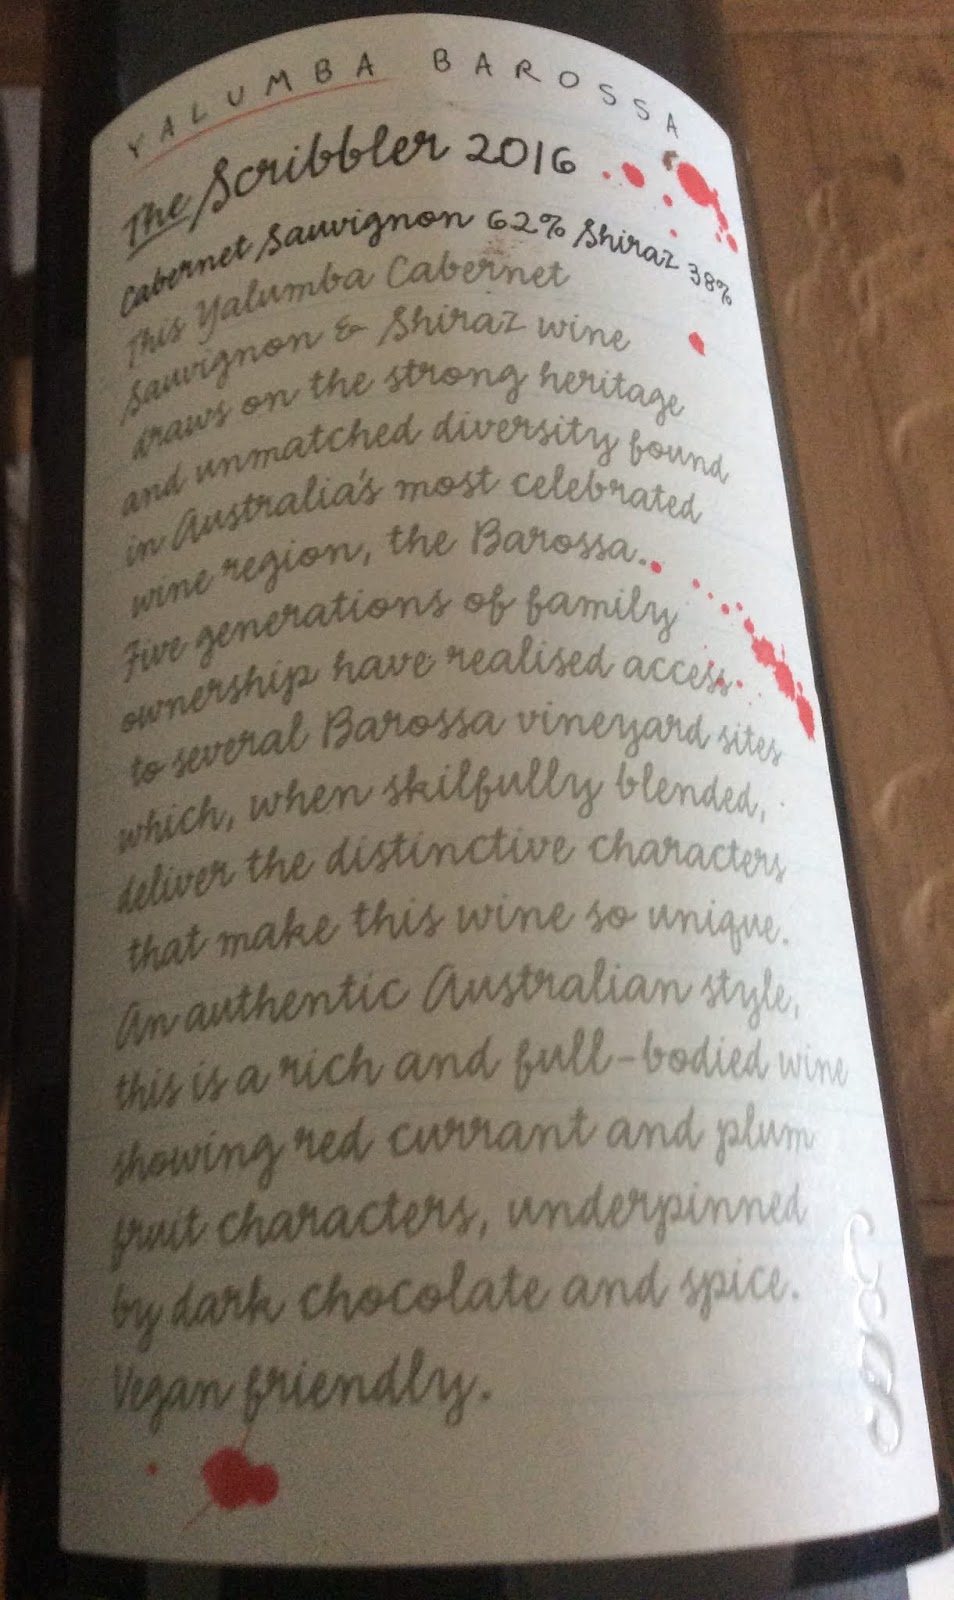 YALUMBA BAROSSA
The Scribbler 2016
Cabernet Sauvignon 62% Shiraz 38%
This Yalumba Cabernet
Sauvignon & Shiraz wine
draws on the strong heritage
and unmatched diversity found
in Australia's most celebrated
wine region, the Barossa.
Five generations of family
ownership have realised access
to several Barossa vineyard sites
which, when skilfully blended,
deliver the distinctive characters
that make this wine so unique.
An authentic Australian style,
this is a rich and full-bodied wine
showing red currant and plum
fruit characters, underpinned
by dark chocolate and spice.
Vegan friendly.